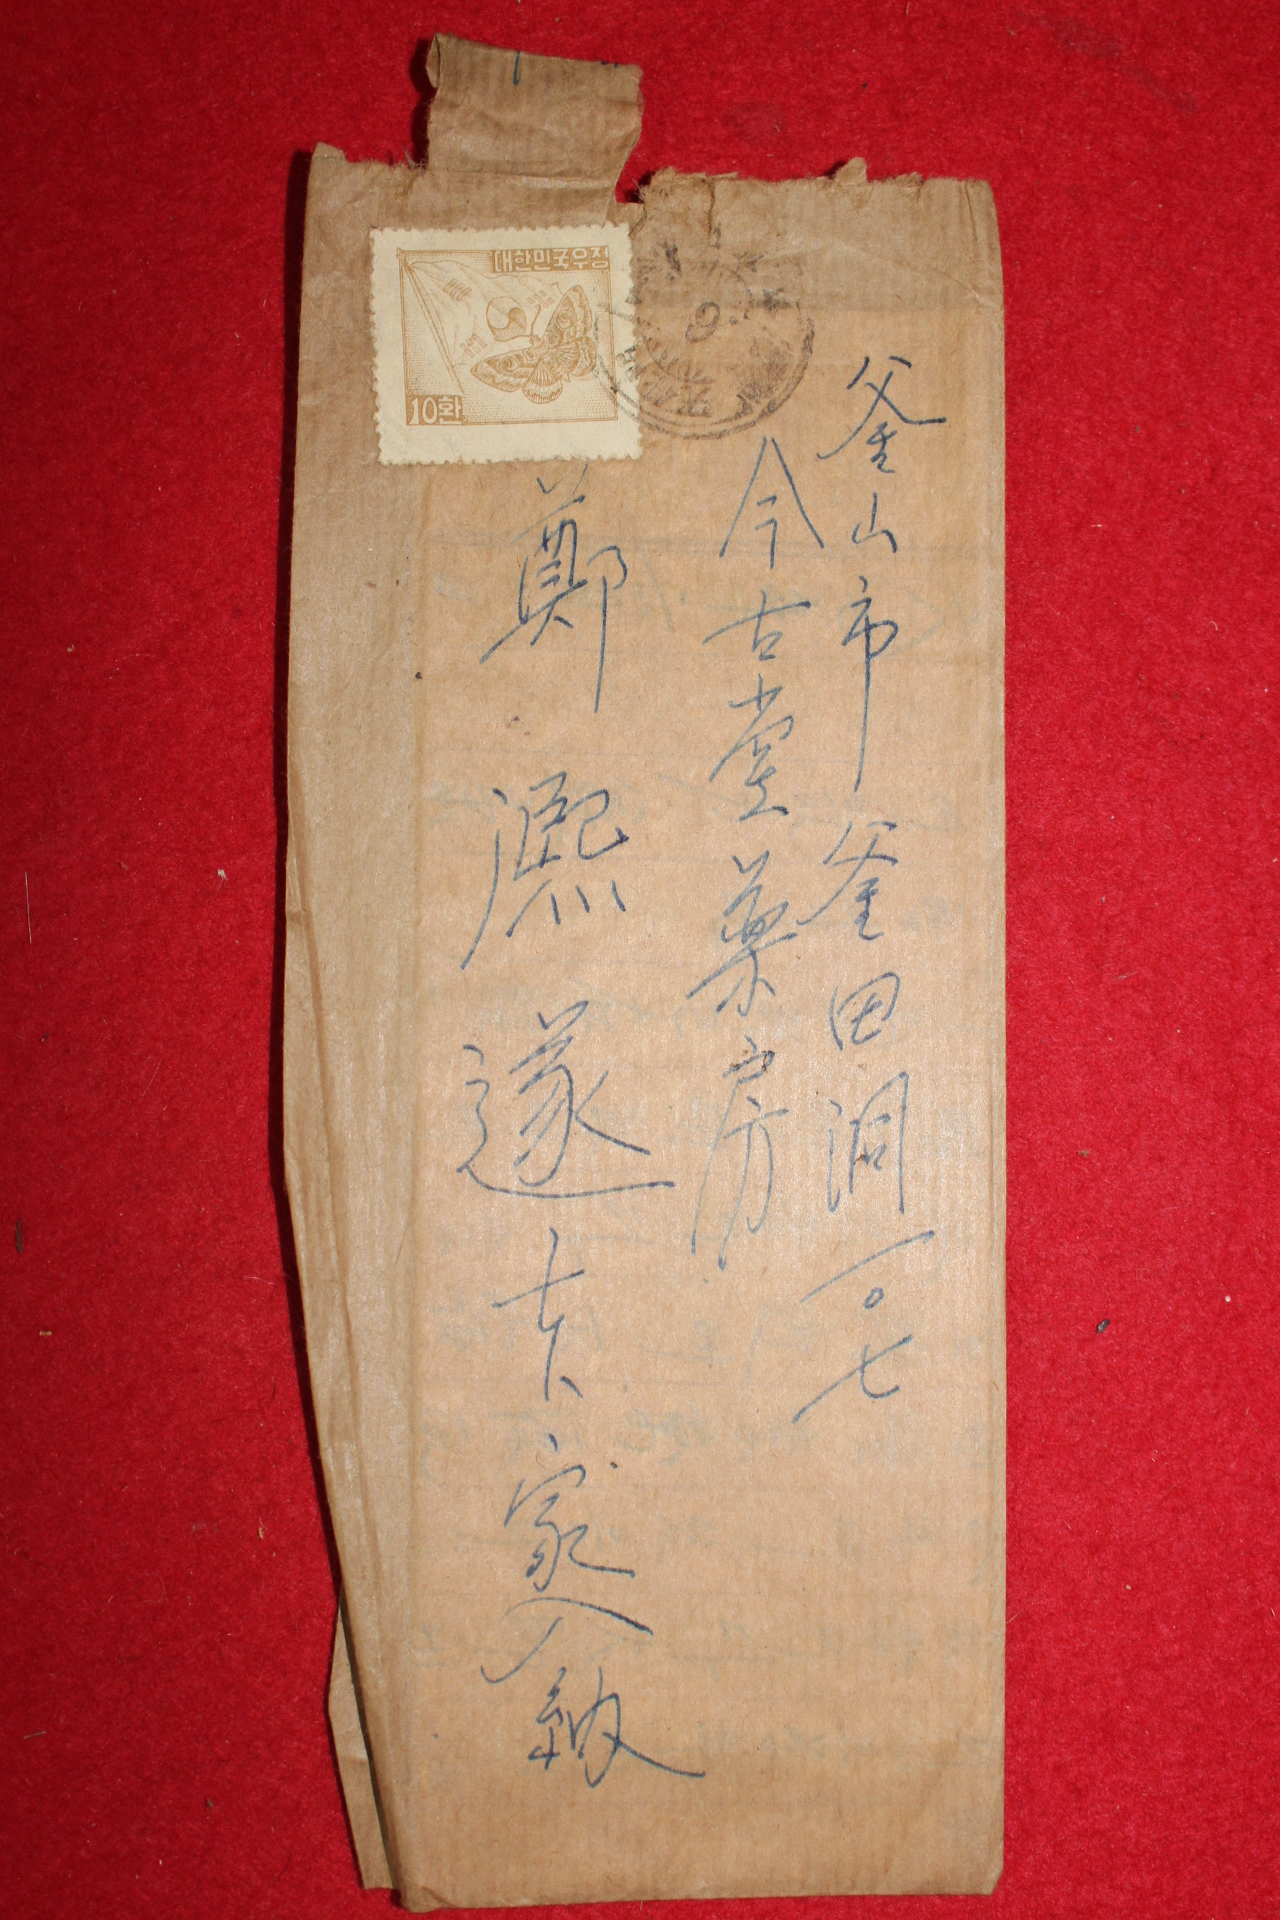 대한민국우정
10환
釜山市 釜田洞 一〇七
今古堂藥房
鄭 熈 遂 大家入納